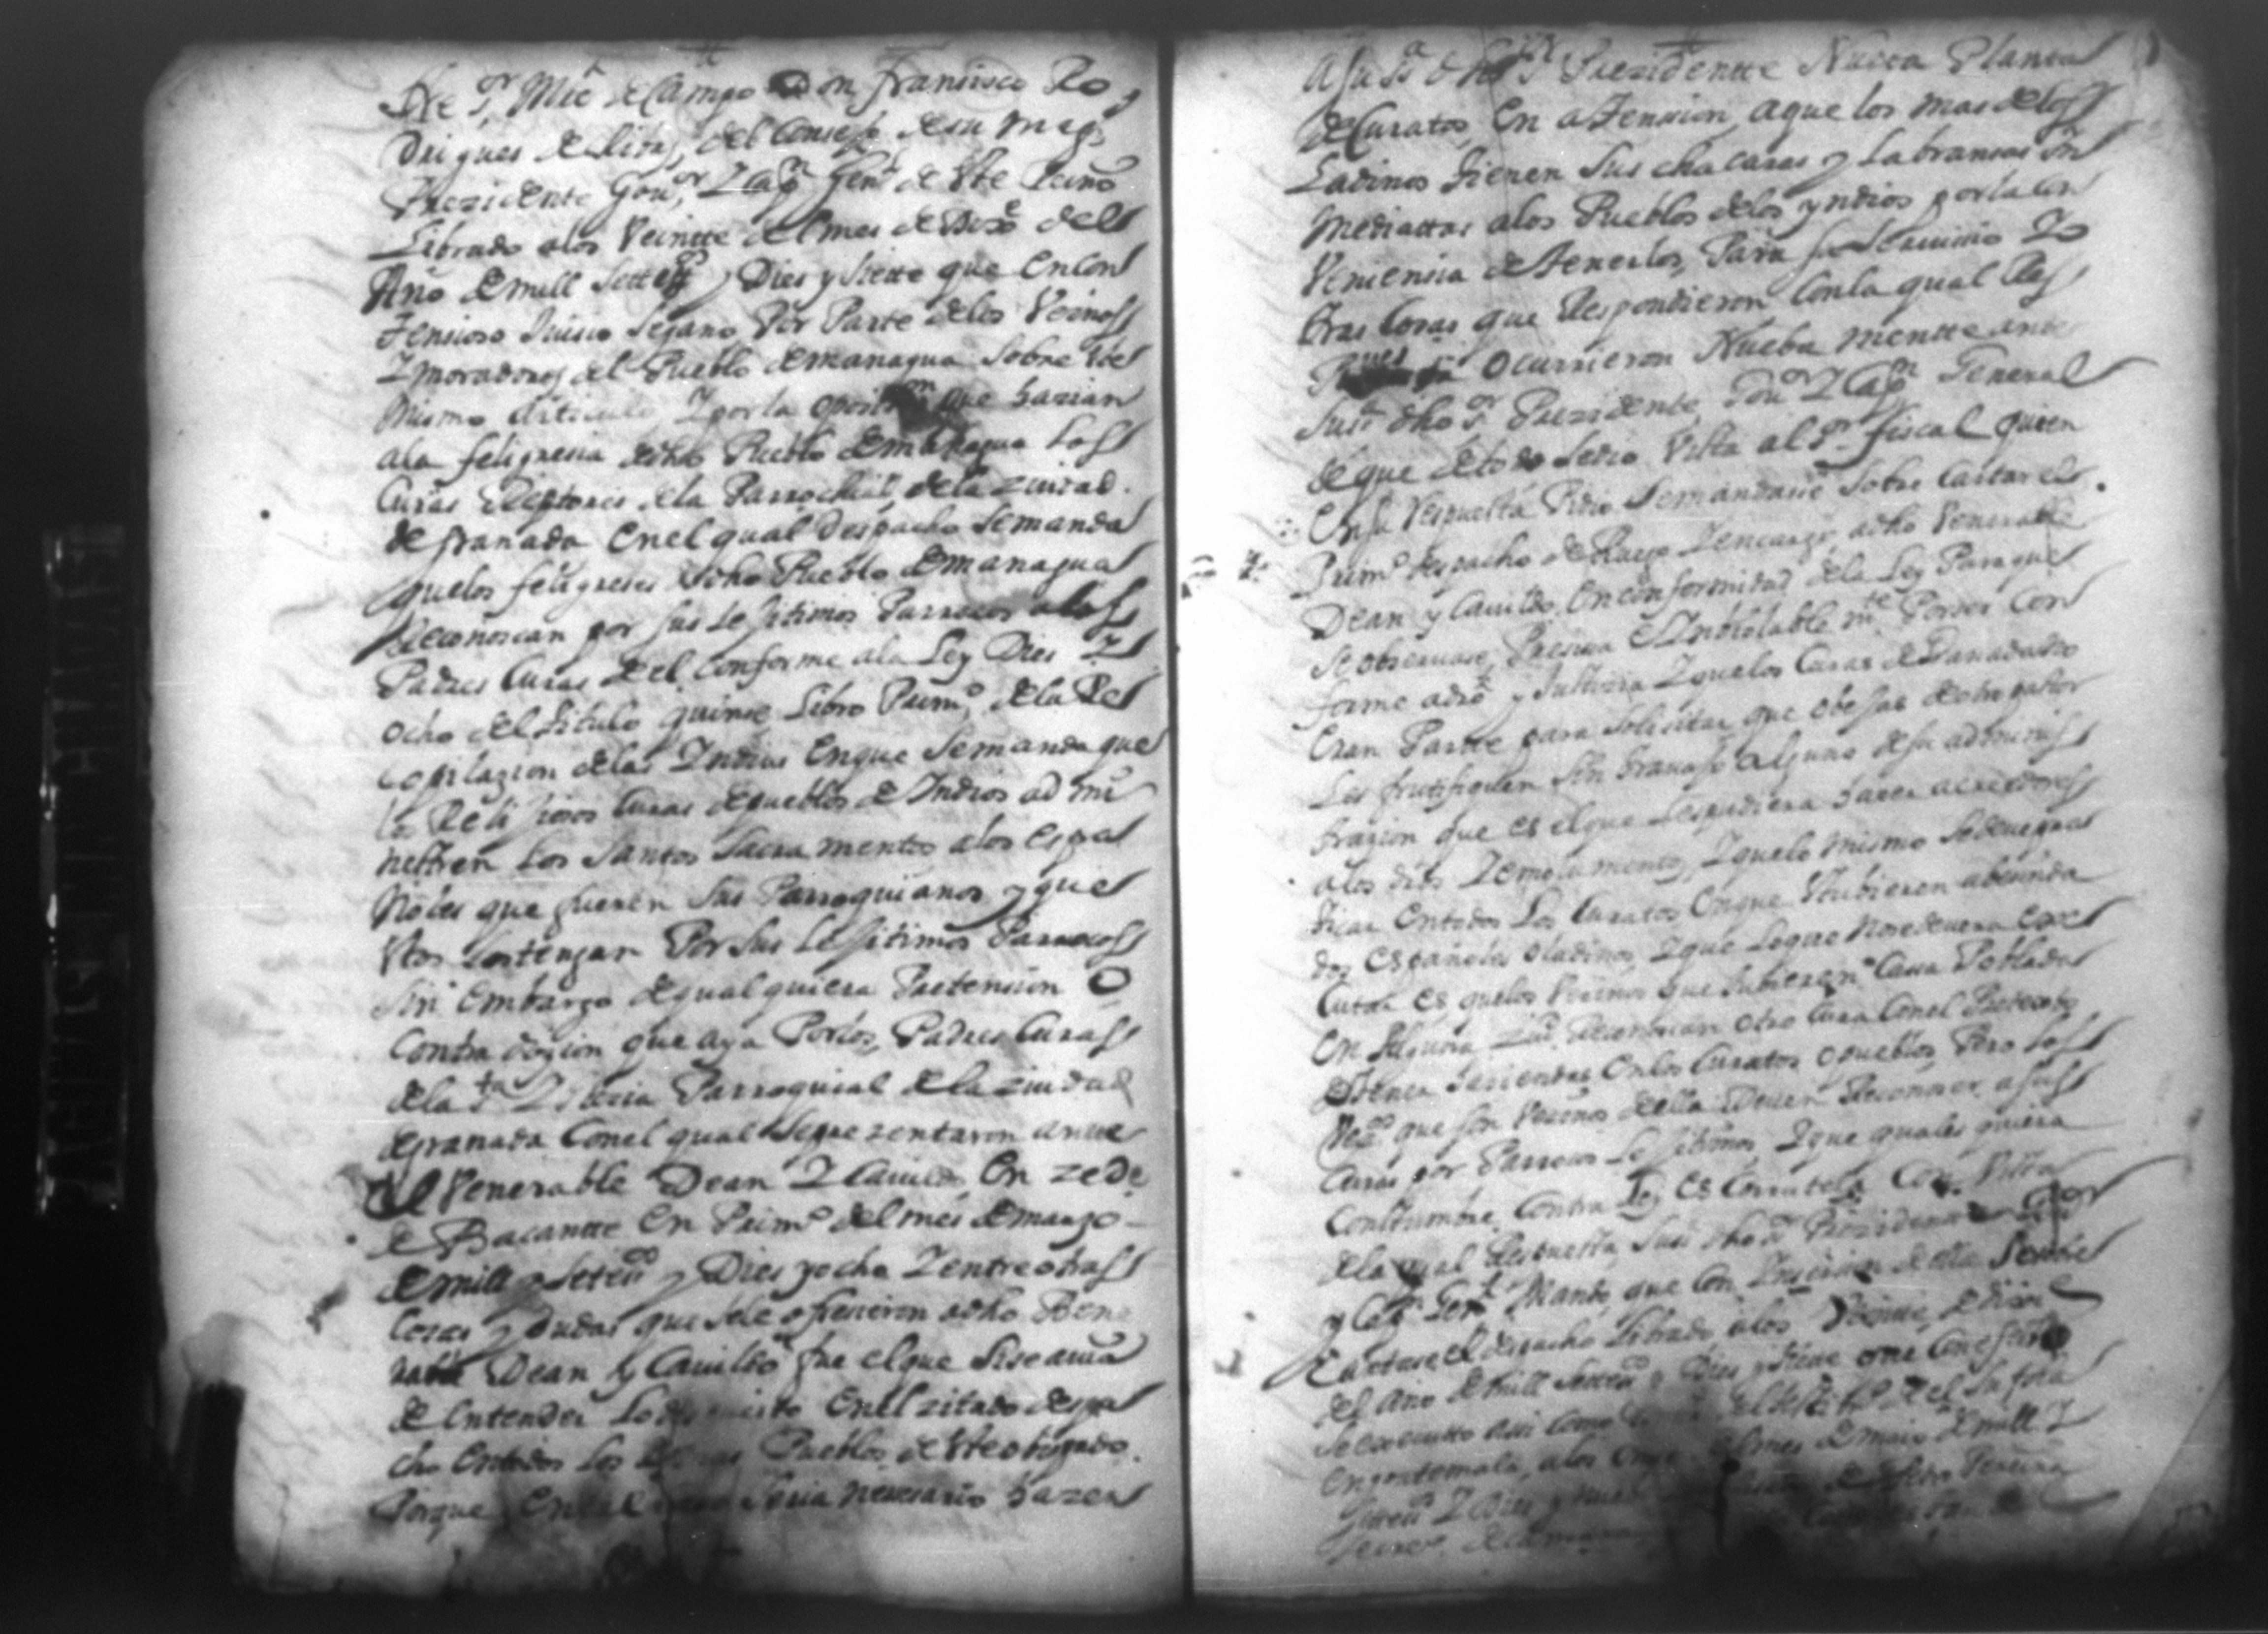 Sre Sr Mre de Campo Don francisco Ro
Drigues de Ribas, del Consejo desu mag
Prezidente Gour. Y Capn Genl de Ste Reino
Librado alos Veintte del mes de Dize del
Año de mill Settesos y Dies y Siette que encon
tensioso Juisio Segano Por Parte delos Vecinos
Y moradores del Pueblo de managua Sobre este
mismo Articulo Y por la oposison que hazian
ala feligresia dedho Pueblo de managua Los
Curas Rectores dela Parrochial dela ziudad
de Granada Enel qual Despacho Semanda
quelos feligreses dedho Pueblo de managua
Reconoscan por sus Lexitimos Parrocos alos
Padres Curas deel conforme ala Ley Dies Y
ocho del titulo quinse Libro Primo dela Re
copilazion delas Yndias Enque Semanda que
los Relijiosos Curas de pueblos de Indios admi
nistren Los Santos Sacramentos alos espa
ñoles que fueren Sus Parroquianos y que
Stos Los tengan Por sus Lexitimos Parrocos
Sin embargo dequalquiera Pretension O
Contradizion que aya Porlos Padres Curas
dela Sta Yglecia Parroquial dela ziudad
degranada Conel qual Seprezentaron antte
el Venerable Dean Y Cauildo En zede
de Bacantte En Primo del mes de marzo
de mill y Seteos y Dies yocho Y entre otras
Cozas y dudas que sele ofrecieron adho Bene
rable Dean y Cauildo fue elque Siseauia
de entender Lo dispuesto Enel zitado despa
cho Entodos Los demas Pueblos de Ste obispado
Porque En tal caso Seria necesario hazer
a su Sa dho Sr Prezidentte Nueva Planta
de Curatos, En atension aque los mas delos
Ladinos tienen Sus chacaras y Labransas in
mediattas alos Pueblos delos yndios por la con
veniensia de tenerlos Para su Seruicio Yo
tras Cosas que Respondieron Conla qual Res
Pues ocurrieron Nueba mentte ante
Susa dho Sr Prezidente Gour Y Capn General
deque detodo Sedio Vista al Sr fiscal quien
Ensu Respuesta Pidio Semandase Sobre Cartar el
Primo despacho de Ruego Y encargo adho Venerable
Dean y Cauildo Enconformidad dela Ley Para que
Se obseruase Presisa E Inbiolable mte Por ser Con
forme adro y Justizia Y quelos Curas de Granada no
Eran Partte para Solisitar que obejas de otro pastor
Les frutifiquen Sin trauajo alguno desu adminis
trazion que es elque Lespudiera hazer acredores
alos dros Y emolumentos, Y quelo mismo Sedeue prac
ticar Entodos Los Curatos Enque Stubieren abesinda
dos Españoles oladinos Y que Loque Nosedeuera Exe
Cutar Es quelos Vecinos que tubieren Casa Poblada
En alguna ziud Reconoscan otro Cura Conel Pretexto
detener hasiendas Enlos Curatos o pueblos, Pero Los
Vezs que son Vecinos della Deuen Reconoser asus
Curas por Parrocos Lexitimos, Y que quales quiera
Costumbre Contra Ley Es Corruptela Con Vista
dela qual Respuesta Susa dho Sr Prezidente Gor
y Capn Genl Mando que con Insersion della Sesobre
Cartase el despacho Librado alos Veinte de Dize
del año de mill Setteos y Dies y Siete
Se executto assi como
en guatemala, alos onse del mes de maio de mill Y
Seteos Y Dies y nueue de Pedro Pereira